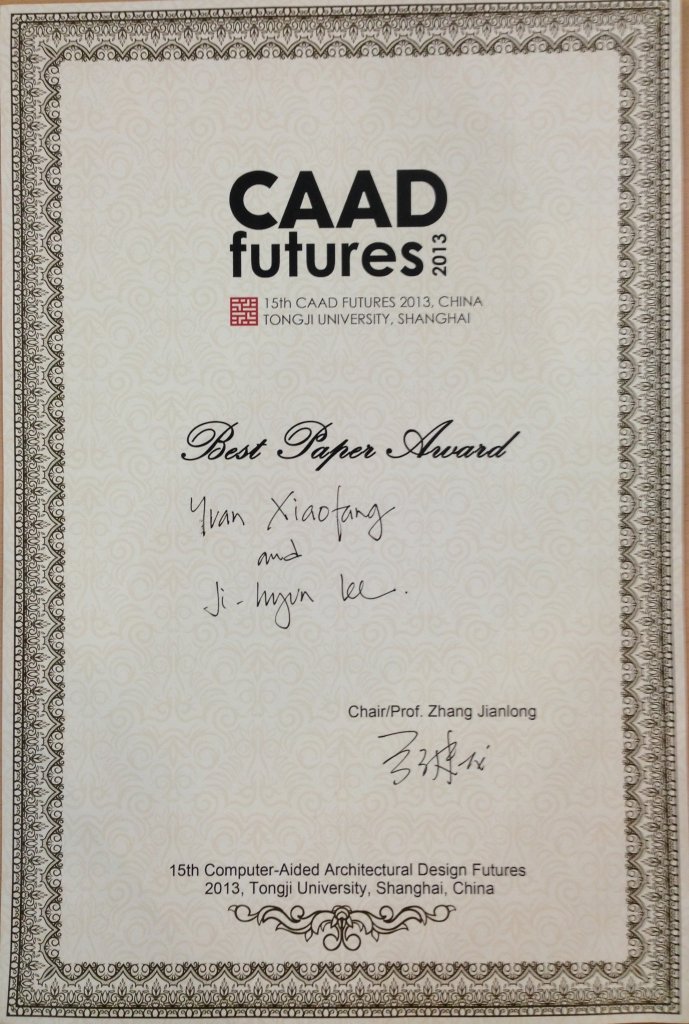 CAAD
futures 2013
15th CAAD FUTURES 2013, CHINA
TONGJI UNIVERSITY, SHANGHAI
Best Paper Award
Yuan Xiaofang
and
Ji-hyun Lee.
Chair/Prof. Zhang Jianlong
15th Computer-Aided Architectural Design Futures
2013, Tongji University, Shanghai, China